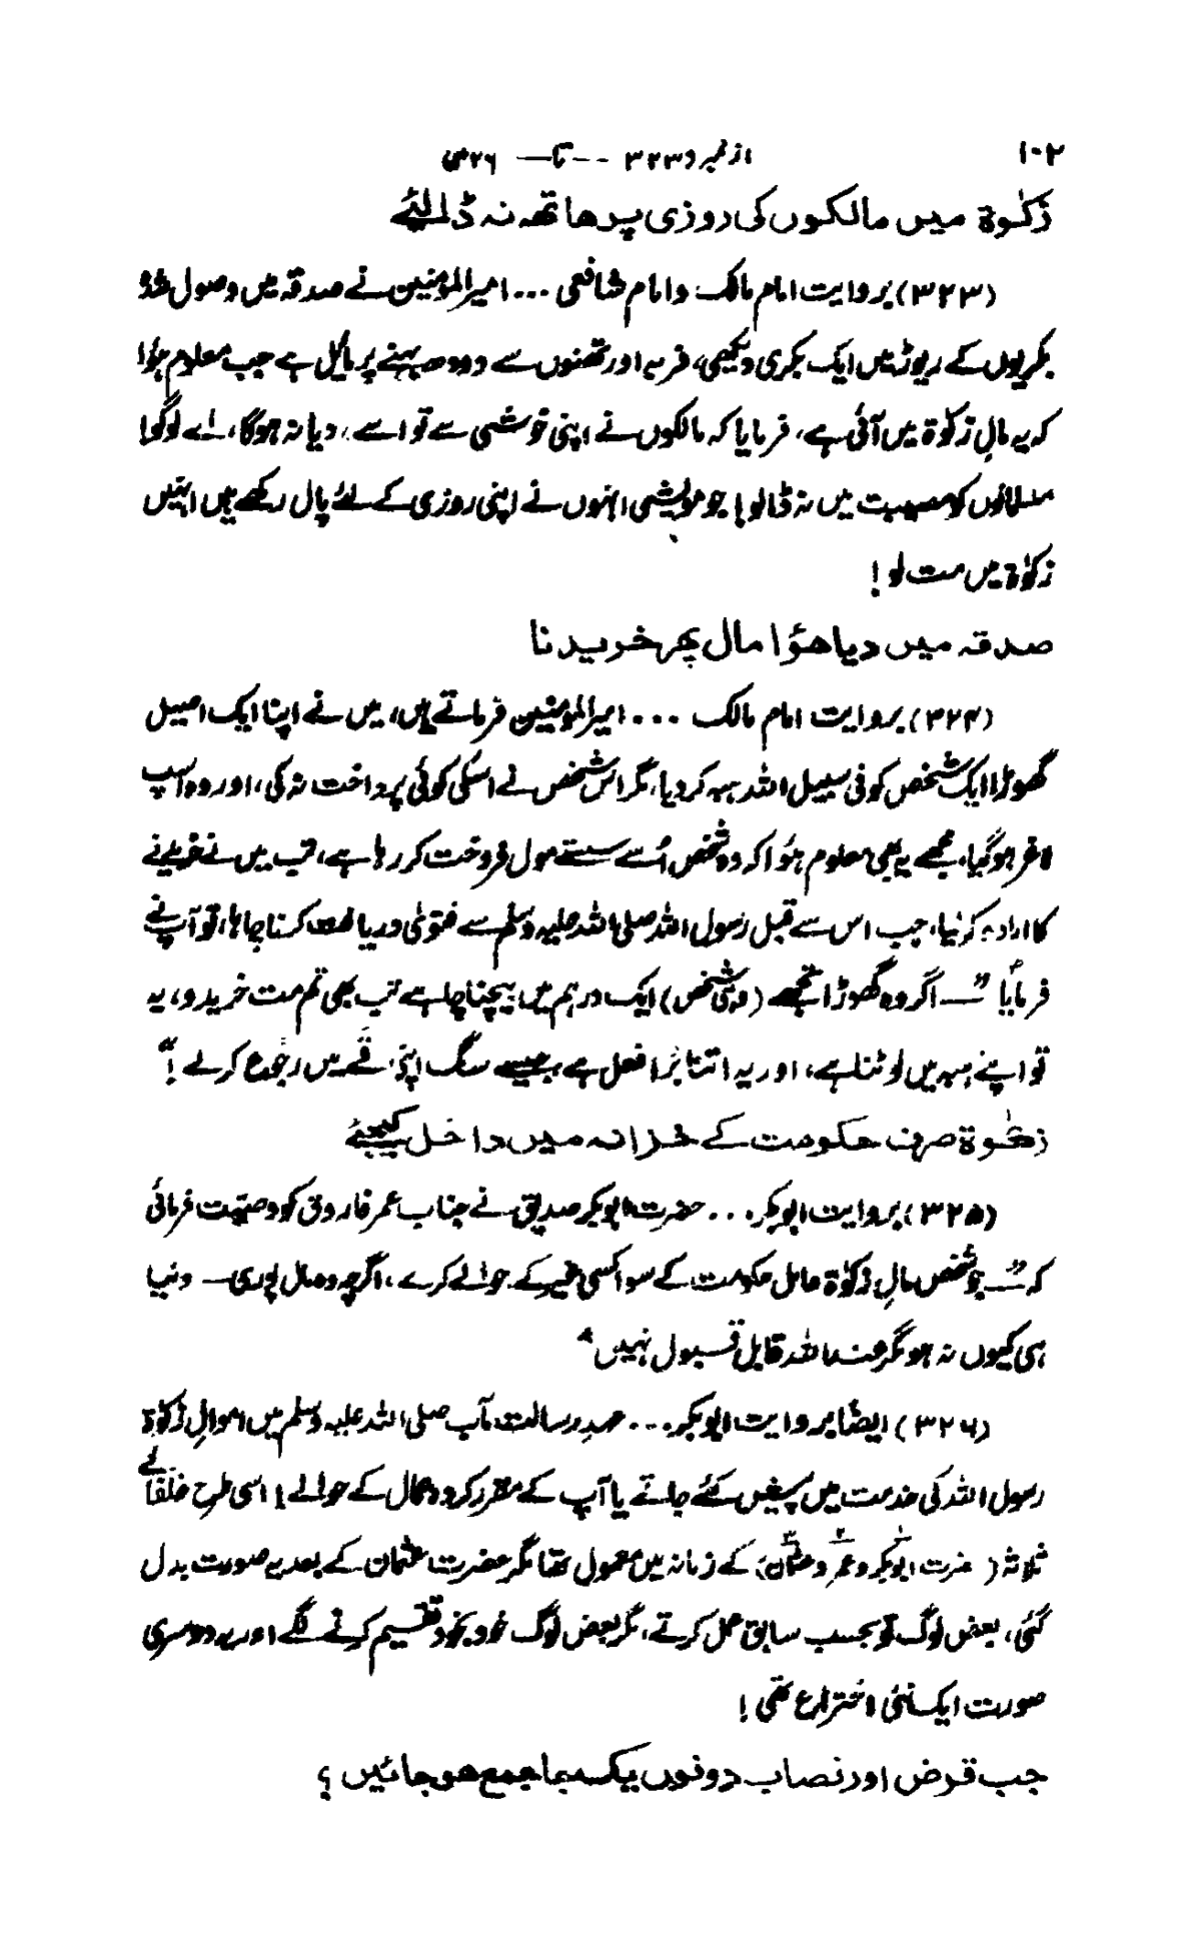 ۱۰۲ از نمبر ۳۲۳ -- تا — ۳۲۶
زکوٰۃ میں مالکوں کی روزی پر ھاتھ نہ ڈالئے
(۳۲۳) بروایت امام مالک و امام شافعی ... امیر المؤمنین نے صدقہ میں وصول شدہ
بکریوں کے ریوڑ میں ایک بکری دیکھی، فربہ اور تھنوں سے دودھ بہنے پر مائل ہے جب معلوم ہؤا
کہ یہ مالِ زکوٰۃ میں آئی ہے، فرمایا کہ مالکوں نے اپنی خوشی سے تو اسے دیا نہ ہوگا، اے لوگو!
مسلمانوں کو مصیبت میں نہ ڈالو! جو مویشی انہوں نے اپنی روزی کے لئے پال رکھے ہیں انہیں
زکوٰۃ میں مت لو!
صدقہ میں دیا ھؤا مال پھر خریدنا
(۳۲۴) بروایت امام مالک ... امیر المؤمنین فرماتے ہیں، میں نے اپنا ایک اصیل
گھوڑا ایک شخص کو فی سبیل اللہ ہبہ کر دیا، مگر اس شخص نے اسکی کوئی پرداخت نہ کی، اور وہ اسپ
لاغر ہو گیا، مجھے یہ بھی معلوم ہؤا کہ وہ شخص اُسے سستے مول فروخت کر رہا ہے، تب میں نے خریدنے
کا ارادہ کر لیا، جب اس سے قبل رسول اللہ صلی اللہ علیہ وسلم سے فتویٰ دریافت کرنا چاہا، تو آپ نے
فرمایا ”— اگر وہ گھوڑا تجھے (وہی شخص) ایک درہم میں بیچنا چاہے تب بھی تم مت خریدو، یہ
تو اپنے ہبہ میں لوٹنا ہے، اور یہ اتنا بُرا فعل ہے جیسے سگ اپنی قے میں رجوع کر لے!“
زکوٰۃ صرف حکومت کے خزانہ میں داخل کیجئے
(۳۲۵) بروایت ابوبکر ... حضرت ابوبکر صدیق نے جناب عمر فاروق کو وصیت فرمائی
کہ ”— جو شخص مالِ زکوٰۃ عامل حکومت کے سوا کسی غیر کے حوالے کرے، اگرچہ وہ مال پوری — دنیا
ہی کیوں نہ ہو مگر عند اللہ قابل قبول نہیں“
(۳۲۶) ایضًا بروایت ابوبکر ... عہدِ رسالت مآب صلی اللہ علیہ وسلم میں اموالِ زکوٰۃ
رسول اللہ کی خدمت میں پیش کئے جاتے یا آپ کے مقرر کردہ عمال کے حوالے! اسی طرح خلفائے
ثلاثہ (حضرت ابوبکر و عمر و عثمان) کے زمانہ میں معمول تھا مگر حضرت عثمان کے بعد یہ صورت بدل
گئی، بعض لوگ تو بحسب سابق عمل کرتے، مگر بعض لوگ خود بخود تقسیم کرنے لگے اور یہ دوسری
صورت ایک نئی اختراع تھی!
جب قرض اور نصاب دونوں یکجا جمع ھو جائیں؟